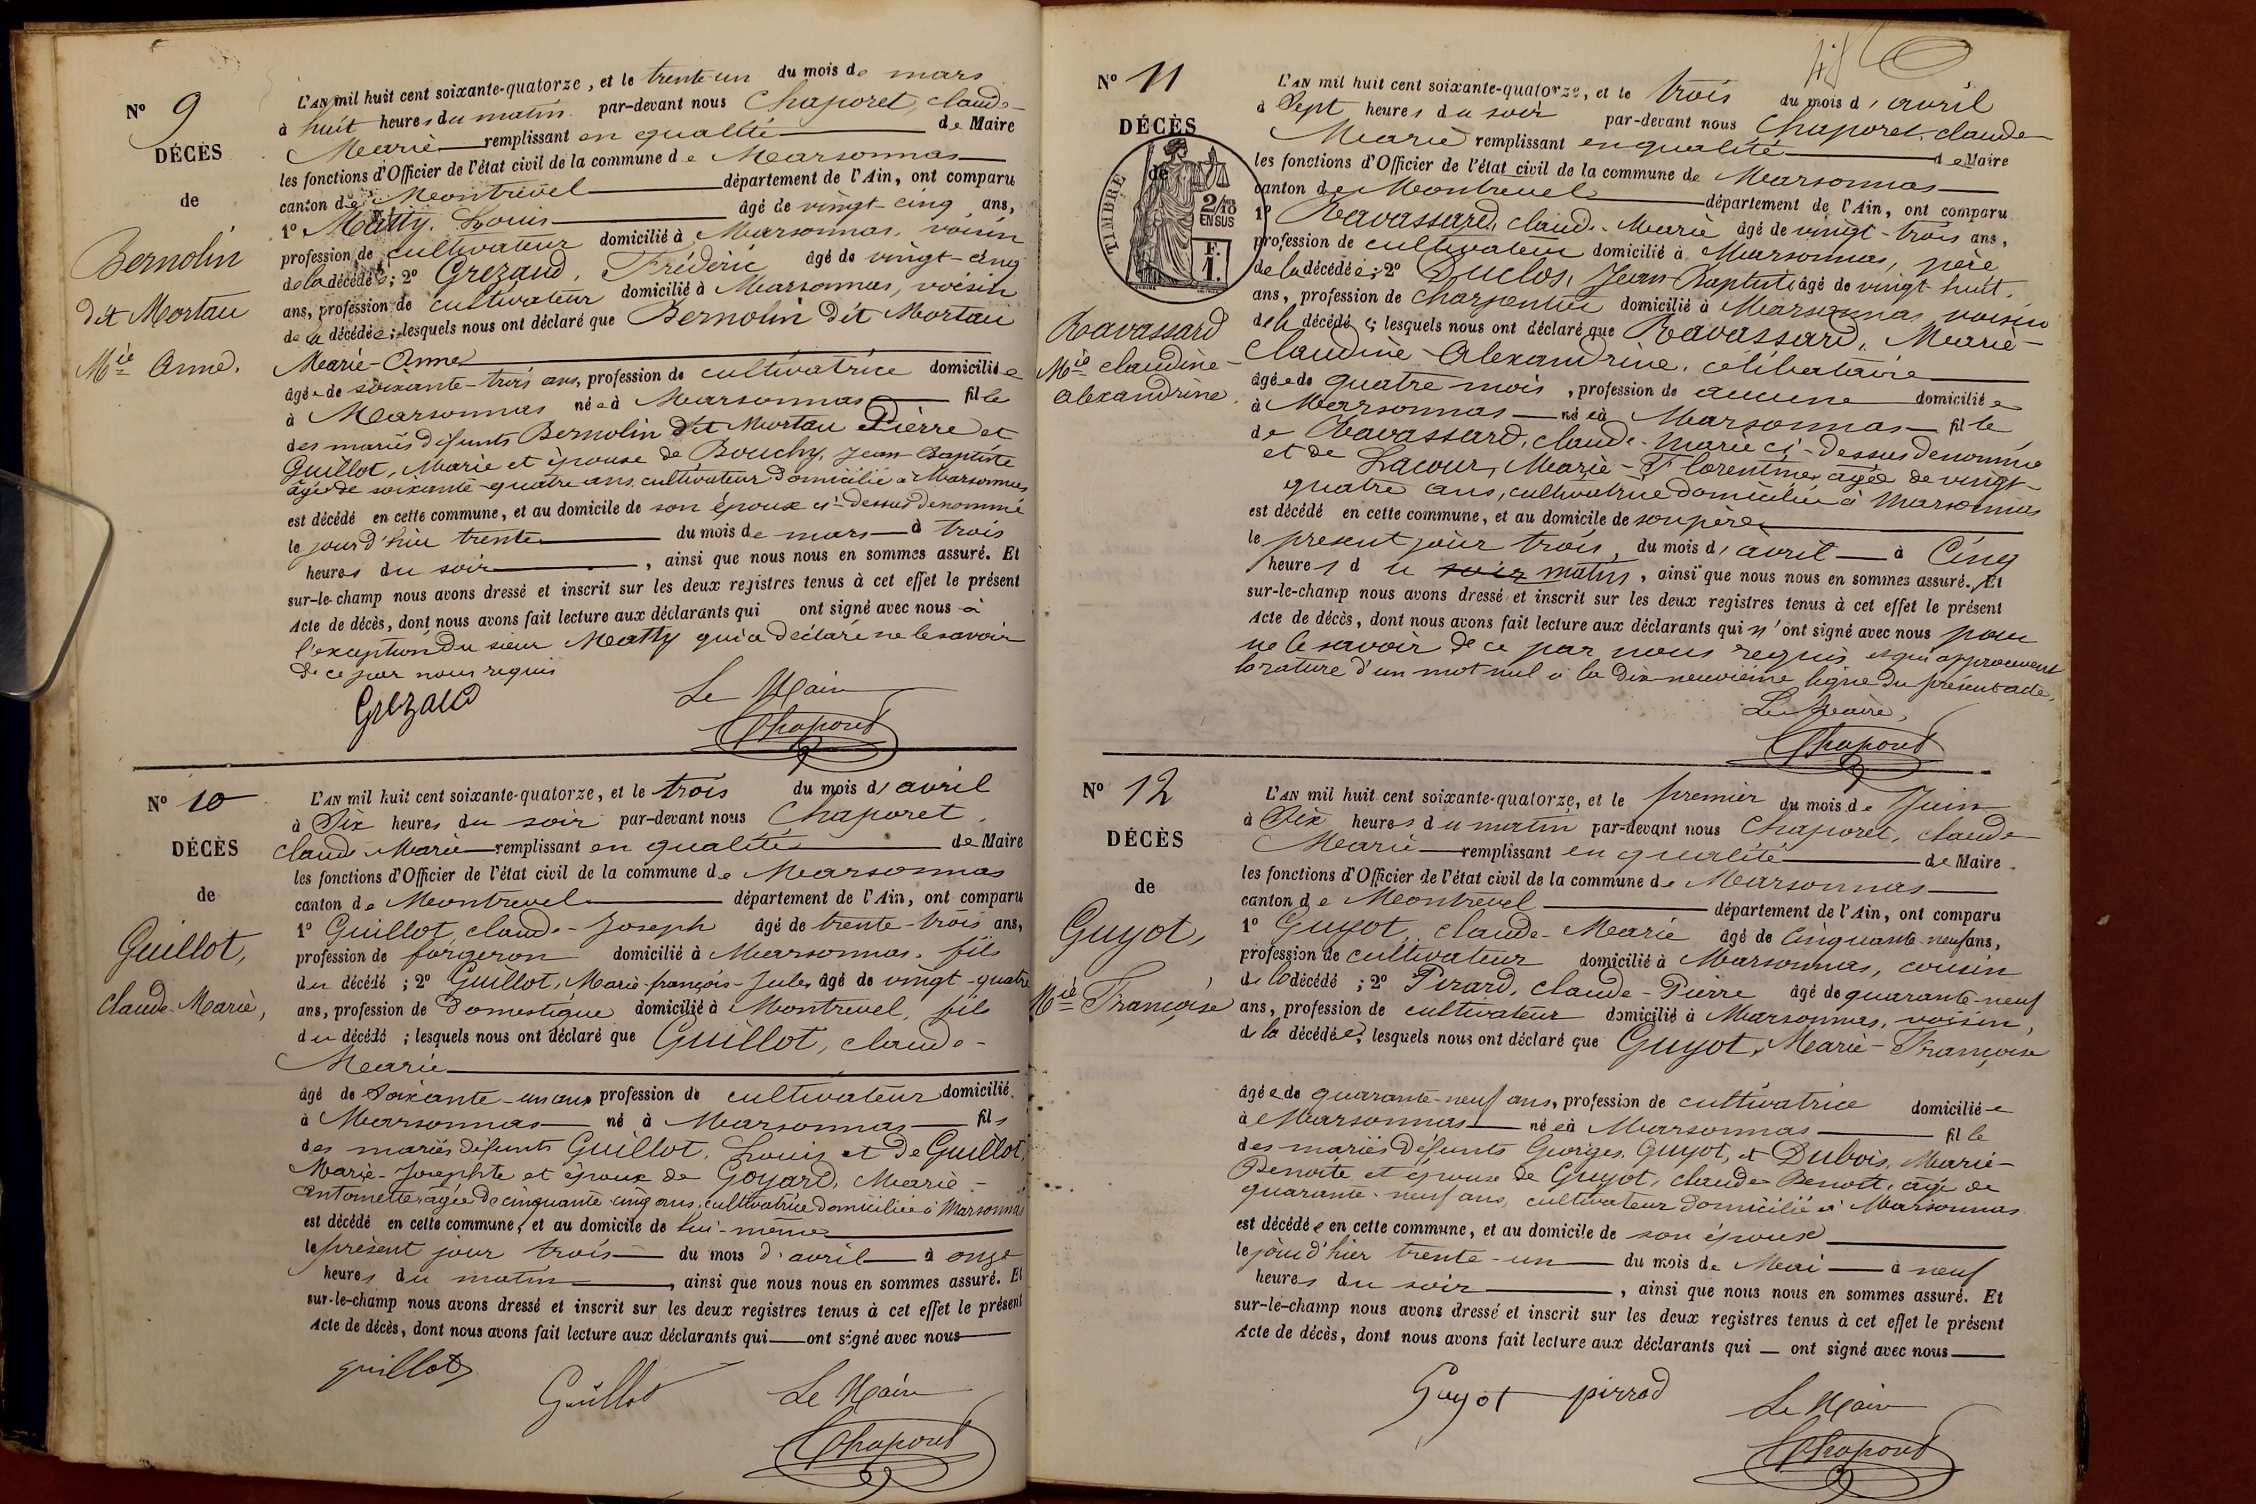 N° 9
DÉCÈS
de
Bernolin
dit Mortau
Mie Anne.
L'AN mil huit cent soixante-quatorze, et le trente un du mois de mars
à huit heures du matin par-devant nous Chaporet, claude-
Marie remplissant en qualité de Maire
les fonctions d'Officier de l'état civil de la commune de Marsonnas
canton de Montrevel département de l'Ain, ont comparu
1° Matty, Louis âgé de vingt-cinq ans,
profession de cultivateur domicilié à Marsonnas, voisin
de la décédée; 2° Grezaud, Frédéric âgé de vingt-cinq
ans, profession de cultivateur domicilié à Marsonnas, voisin
de la décédée; lesquels nous ont déclaré que Bernolin dit Mortau
Marie-Anne
âgée de soixante-trois ans, profession de cultivatrice domiciliée
à Marsonnas née à Marsonnas fille
des mariés défunts Bernolin dit Mortau Pierre et
Guillot, Marie et épouse de Bouchy, Jean-Baptiste
âgé de soixante-quatre ans, cultivateur domicilié à Marsonnas
est décédé en cette commune, et au domicile de son époux ci-dessus denommé
le jour d'hier trente du mois de mars à trois
heures du soir, ainsi que nous nous en sommes assuré. Et
sur-le-champ nous avons dressé et inscrit sur les deux registres tenus à cet effet le présent
Acte de décès, dont nous avons fait lecture aux déclarants qui ont signé avec nous à
l'exception du sieur Matty qui a déclaré ne le savoir
de ce par nous requis
Le Maire
Grezaud
Chaporet
N° 10
DÉCÈS
de
Guillot,
Claude-Marie,
L'AN mil huit cent soixante-quatorze, et le trois du mois d'avril
à Six heures du soir par-devant nous Chaporet
claude-Marie remplissant en qualité de Maire
les fonctions d'Officier de l'état civil de la commune de Marsonnas
canton de Montrevel département de l'Ain, ont comparu
1° Guillot, claude-Joseph âgé de trente-trois ans,
profession de forgeron domicilié à Marsonnas, fils
du décédé; 2° Guillot, Marie-françois-Jules âgé de vingt-quatre
ans, profession de Domestique domicilié à Montrevel, fils
du décédé; lesquels nous ont déclaré que Guillot, claude-
Marie
âgé de Soixante-un ans profession de cultivateur domicilié
à Marsonnas né à Marsonnas fils
des mariés défunts Guillot, Louis et de Guillot,
Marie-Josephte et époux de Goyard, Marie-
Antoinette âgée de cinquante-cinq ans, cultivatrice domiciliée à Marsonnas
est décédé en cette commune, et au domicile de lui-même
le présent jour trois du mois d'avril à onze
heures du matin, ainsi que nous nous en sommes assuré. Et
sur-le-champ nous avons dressé et inscrit sur les deux registres tenus à cet effet le présent
Acte de décès, dont nous avons fait lecture aux déclarants qui ont signé avec nous
guillot
Guillot
Le Maire
Chaporet
N° 11
DÉCÈS
de
TIMBRE
2/10
EN SUS
F.
1.
Ravassard
Mie claudine-
alexandrine.
L'AN mil huit cent soixante-quatorze, et le trois du mois d'avril
à Sept heures du soir par-devant nous Chaporet, claude
Marie remplissant en qualité de Maire
les fonctions d'Officier de l'état civil de la commune de Marsonnas
canton de Montrevel département de l'Ain, ont comparu
1° Ravassard, claude-Marie âgé de vingt-trois ans,
profession de cultivateur domicilié à Marsonnas, père
de la décédée; 2° Duclos, Jean-Baptiste âgé de vingt huit
ans, profession de charpentier domicilié à Marsonnas voisin
de la décédée; lesquels nous ont déclaré que Ravassard, Marie-
Claudine-Alexandrine, célibataire
âgée de quatre mois, profession de aucune domiciliée
à Marsonnas née à Marsonnas fille
de Ravassard, claude-marie ci-dessus denommé
et de Lacour, Marie-Florentine, agée de vingt-
quatre ans, cultivatrice domiciliée à Marsonnas
est décédé en cette commune, et au domicile de son père
le present jour trois, du mois d'avril à Cinq
heures du soir matin, ainsi que nous nous en sommes assuré. Et
sur-le-champ nous avons dressé et inscrit sur les deux registres tenus à cet effet le présent
Acte de décès, dont nous avons fait lecture aux déclarants qui n'ont signé avec nous pour
ne le savoir de ce par nous requis et qui approuvent
la rature d'un mot nul à la dix-neuvième ligne du présent acte.
Le Maire,
Chaporet
N° 12
DÉCÈS
de
Guyot,
Mie Françoise
L'AN mil huit cent soixante-quatorze, et le premier du mois de Juin
à Six heures du matin par-devant nous Chaporet, claude
Marie remplissant en qualité de Maire
les fonctions d'Officier de l'état civil de la commune de Marsonnas
canton de Montrevel département de l'Ain, ont comparu
1° Guyot, claude-Marie âgé de Cinquante-neuf ans,
profession de cultivateur domicilié à Marsonnas, cousin
de la décédé; 2° Pirard, claude-Pierre âgé de quarante-neuf
ans, profession de cultivateur domicilié à Marsonnas, voisin,
de la décédée; lesquels nous ont déclaré que Guyot, Marie-Françoise
âgée de quarante-neuf ans, profession de cultivatrice domiciliée
à Marsonnas née à Marsonnas fille
des mariés défunts Georges Guyot, et Dubois, Marie-
Benoite et épouse de Guyot, claude Benoit, âgé de
quarante-neuf ans, cultivateur domicilié à Marsonnas
est décédée en cette commune, et au domicile de son époux
le jour d'hier trente-un du mois de Mai à neuf
heures du soir, ainsi que nous nous en sommes assuré. Et
sur-le-champ nous avons dressé et inscrit sur les deux registres tenus à cet effet le présent
Acte de décès, dont nous avons fait lecture aux déclarants qui ont signé avec nous
Guyot pirrad
Le Maire
Chaporet